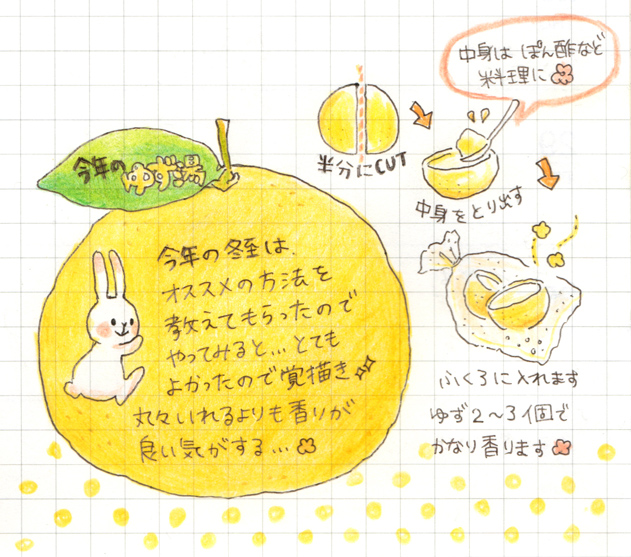 今年の
ゆず湯
今年の冬至は、
オススメの方法を
教えてもらったので
やってみると…とても
よかったので覚描き
丸々いれるよりも香りが
良い気がする…
半分にCUT
中身は ぽん酢など
料理に
中身をとり出す
ふくろに入れます
ゆず2〜3個で
かなり香ります